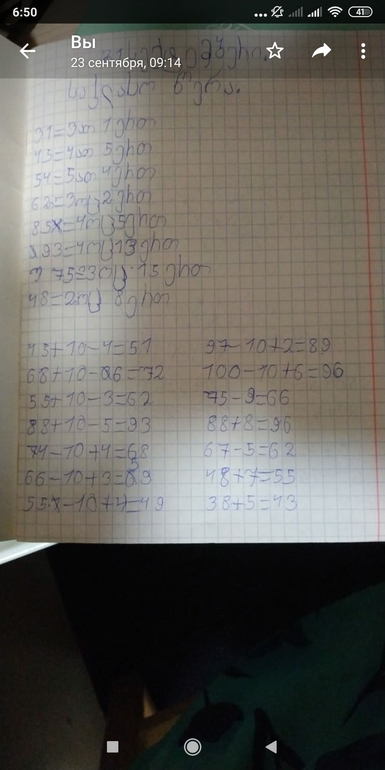 6:50
41
Вы
23 сентября, 09:14
31=3ათ 1 ერთ
45=4ათ 5 ერთ
54=5ათ 4 ერთ
62=3ოც 2 ერთ
85=4ოც 5 ერთ
93=4ოც 13 ერთ
75=3ოც 15 ერთ
48=2ოც 8 ერთ
45+10-4=51
68+10-6=72
55+10-3=62
88+10-5=93
74-10+4=68
66-10+3=59
55-10+4=49
97-10+2=89
100-10+6=96
75-9=66
88+8=96
67-5=62
48+7=55
38+5=43